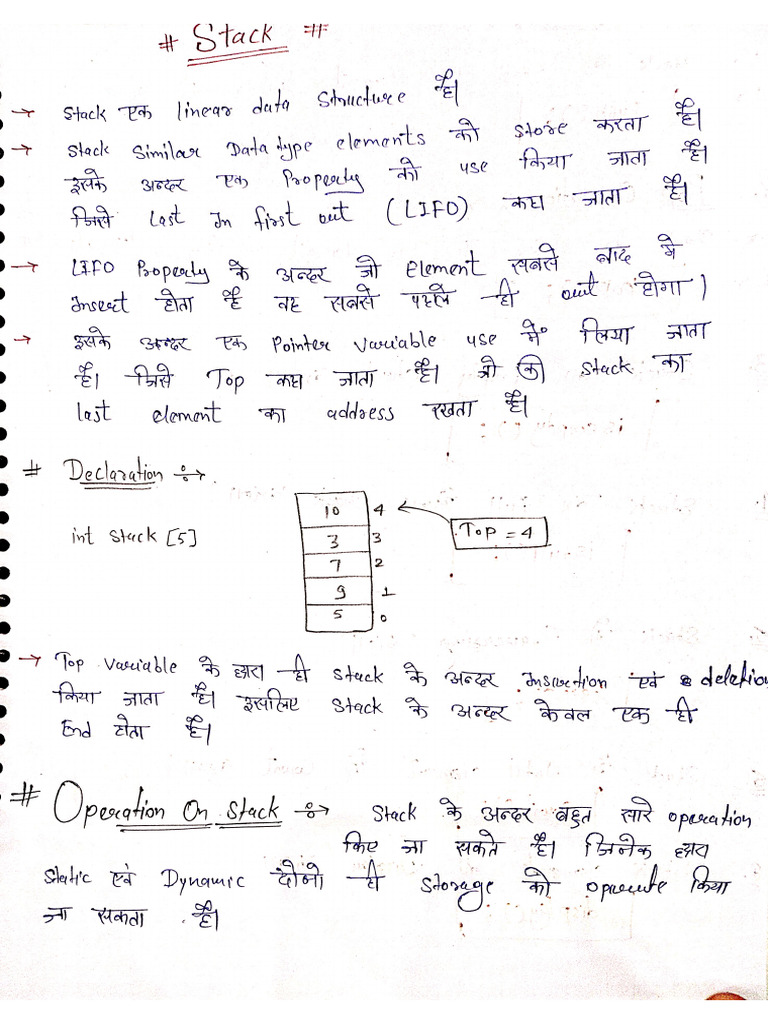 # Stack #
→ Stack एक linear data Structure है।
→ Stack Similar Data type elements को store करता है।
इसके अन्दर एक Property को use किया जाता है।
जिसे Last In first out (LIFO) कहा जाता है।
→ LIFO Property के अन्दर जो Element सबसे बाद मे
Insert होता है वह सबसे पहले ही out होगा।
→ इसके अन्दर एक Pointer variable use में लिया जाता
है। जिसे Top कहा जाता है। जो की Stack का
last element का address रखता है।
# Declaration :→
int Stack [5]
10 4
Top = 4
3 3
7 2
9 1
5 0
→ Top Variable के द्वारा ही Stack के अन्दर Insertion एवं deletion
किया जाता है। इसलिए Stack के अन्दर केवल एक ही
End होता है।
# Operation On Stack :→ Stack के अन्दर बहुत सारे operation
किए जा सकते है। जिनके द्वारा
Static एवं Dynamic दोनो ही Storage को operate किया
जा सकता है।